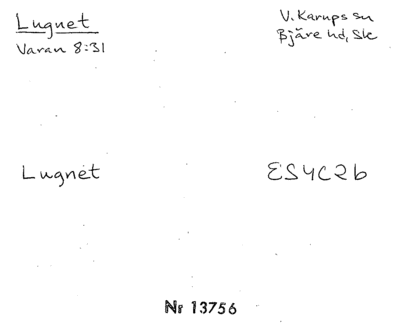 Lugnet
Varan 8:31
V. Karups sn
Bjäre hd, Sk
Lugnet
ES4C2b
Nr 13756